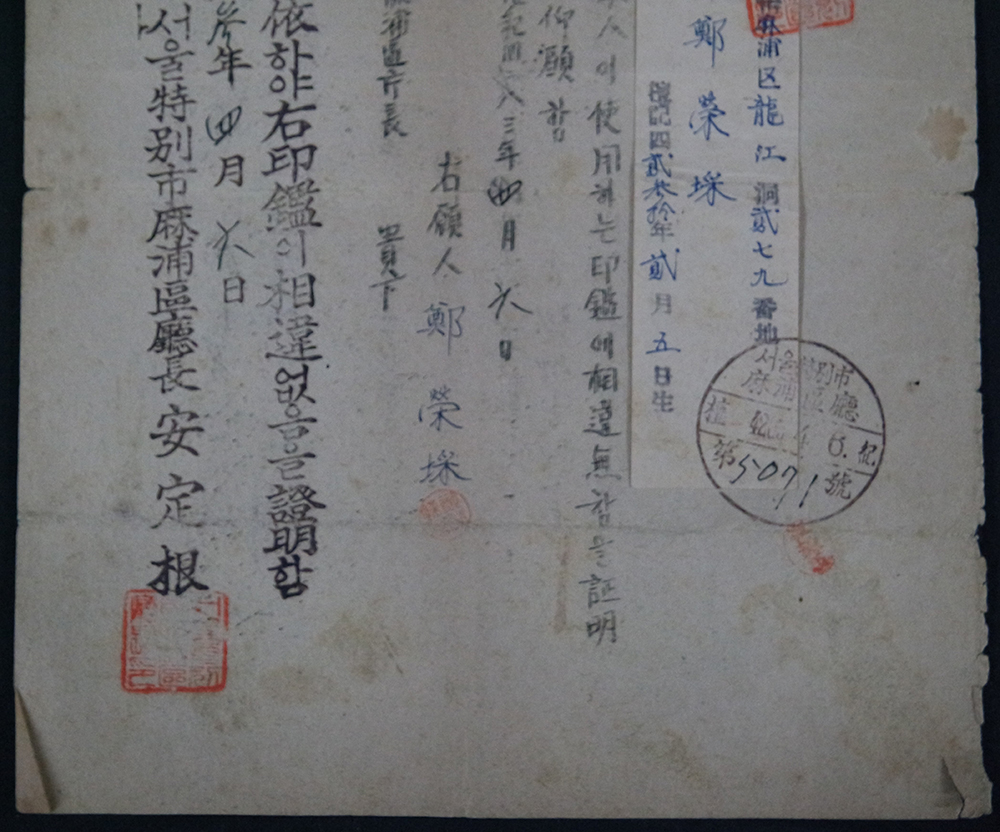 麻浦区龍江洞貳七九番地
鄭榮埰
檀記四貳參拾年貳月五日生
人이使用하는印鑑에相違無함을証明
仰願함
紀四二八三年四月六日
右願人 鄭榮埰
麻浦區庁長 貴下
依하야右印鑑이相違없음을證明함
參年四月六日
서울特別市麻浦區廳長安定根
서울特別市
麻浦區廳
檀 4283. 4. 6. 紀
第5071號